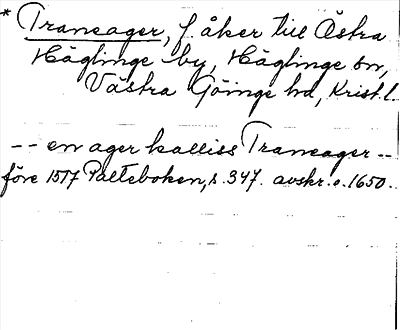 * Traneager, f. åker till Östra
Häglinge by, Häglinge sn,
Västra Göinge hd, Krist.l.
-- en ager kalliss Traneager --
före 1577 Palteboken, s. 347. avskr. o. 1650.